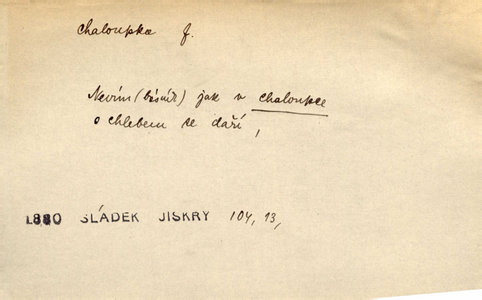 chaloupka f.
Nevím (básník) jak v chaloupce
o chlebem se daří,
1880 SLÁDEK JISKRY 104, 13,